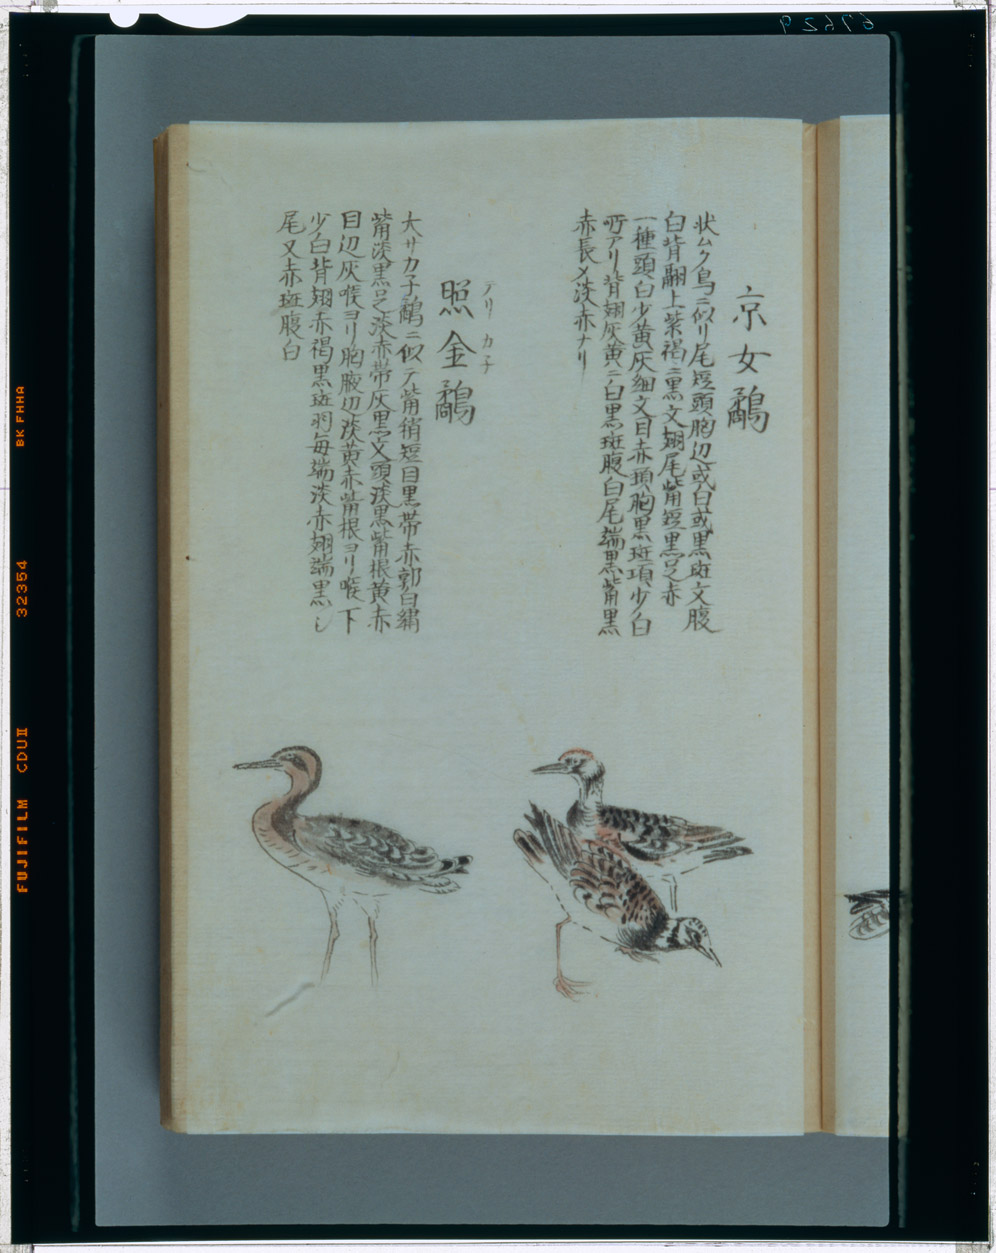 京女鷸
状ムク鳥ニ似リ尾短頭胸辺或白或黒斑文腹
白背翮上紫褐ニ黒文翅尾觜短黒足赤
一種頭白少黄灰細文目赤頬胸黒斑項少白
アリ背翅灰黄ニ白黒斑腹白尾端黒觜黒
赤長〆淡赤ナリ
テリカ子
照金鷸
大サカ子鷸ニ似テ觜稍短目黒帯赤郭白繍
觜淡黒足淡赤帯灰黒文頭淡黒觜根黄赤
目辺灰喉ヨリ胸腋辺淡黄赤觜根ヨリ喉下
少白背翅赤褐黒斑羽毎端淡赤翅端黒シ
尾又赤斑腹白
67629
BKFHHA
32354
FUJIFILM CDUII